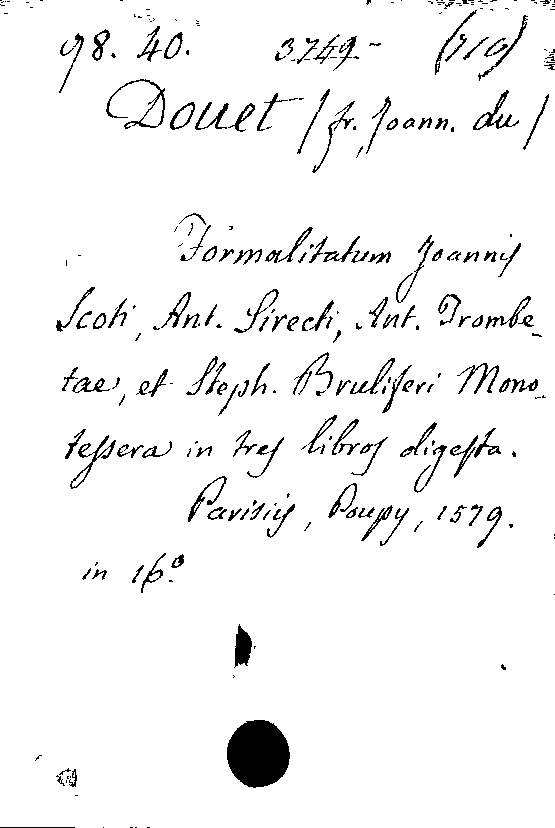 98. 40. 3749- (710)
Douet / fr. Joann. du /
Formalitatum Joannis
Scoti, Ant. Sirecti, Ant. Trombe-
tae, et Steph. Bruliferi Mono-
tessera in tres libros digesta.
Parisiis, Poupy, 1579.
in 16°